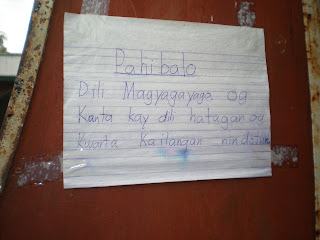 Pahibalo
Dili Magyagayaga og
Kanta kay dili hatagan og
Kwarta Kailangan